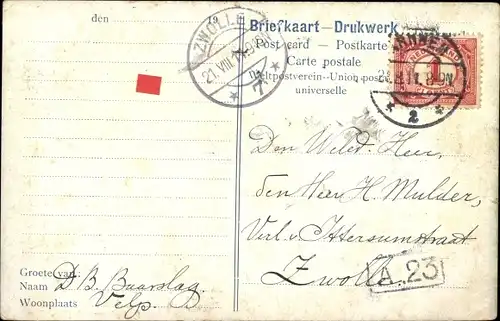 den 19
Briefkaart—Drukwerk
Post card — Postkarte
Carte postale
Weltpostverein—Union postale
universelle
ZWOLLE
21.VIII.11
7
ARNHEM
8.11. 8-9N
2
1
CENT
Den Weled. Heer,
den Heer H. Mulder,
Verl. v Ittersumstraat
Zwolle.
A.23
Groete van:
Naam D B. Baarslag
Woonplaats Velp.